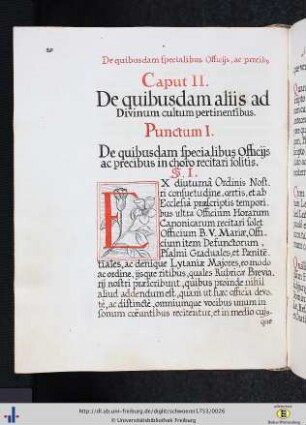 De quibusdam specialibus Officijs, ac precib9
Caput II.
De quibusdam aliis ad
Divinum cultum pertinentibus.
Punctum I.
De quibusdam specialibus Officijs
ac precibus in choro recitari solitis.
§. I.
EX diuturnâ Ordinis Nost
ri consuetudine, certis, et ab
Ecclesia præscriptis tempori
bus ultra Officium Horarum
Canonicarum recitari solet
Officium B. V. Mariæ, Offi
cium item Defunctorum,
Psalmi Graduales, et Pænitē
tiales, ac denique Lytaniæ Majores, eo modo
ac ordine, ijsque ritibus, quales Rubricæ Brevia
rij nostri præscribunt, quibus proinde nihil
aliud addendum est, quàm ut hæc officia devo
tè, ac distinctè, omniumque vocibus unum in
sonum coëuntibus recitentur, et in medio cujs
que
http://dl.ub.uni-freiburg.de/diglit/scheuerer1753/0026
© Universitätsbibliothek Freiburg
Baden-Württemberg